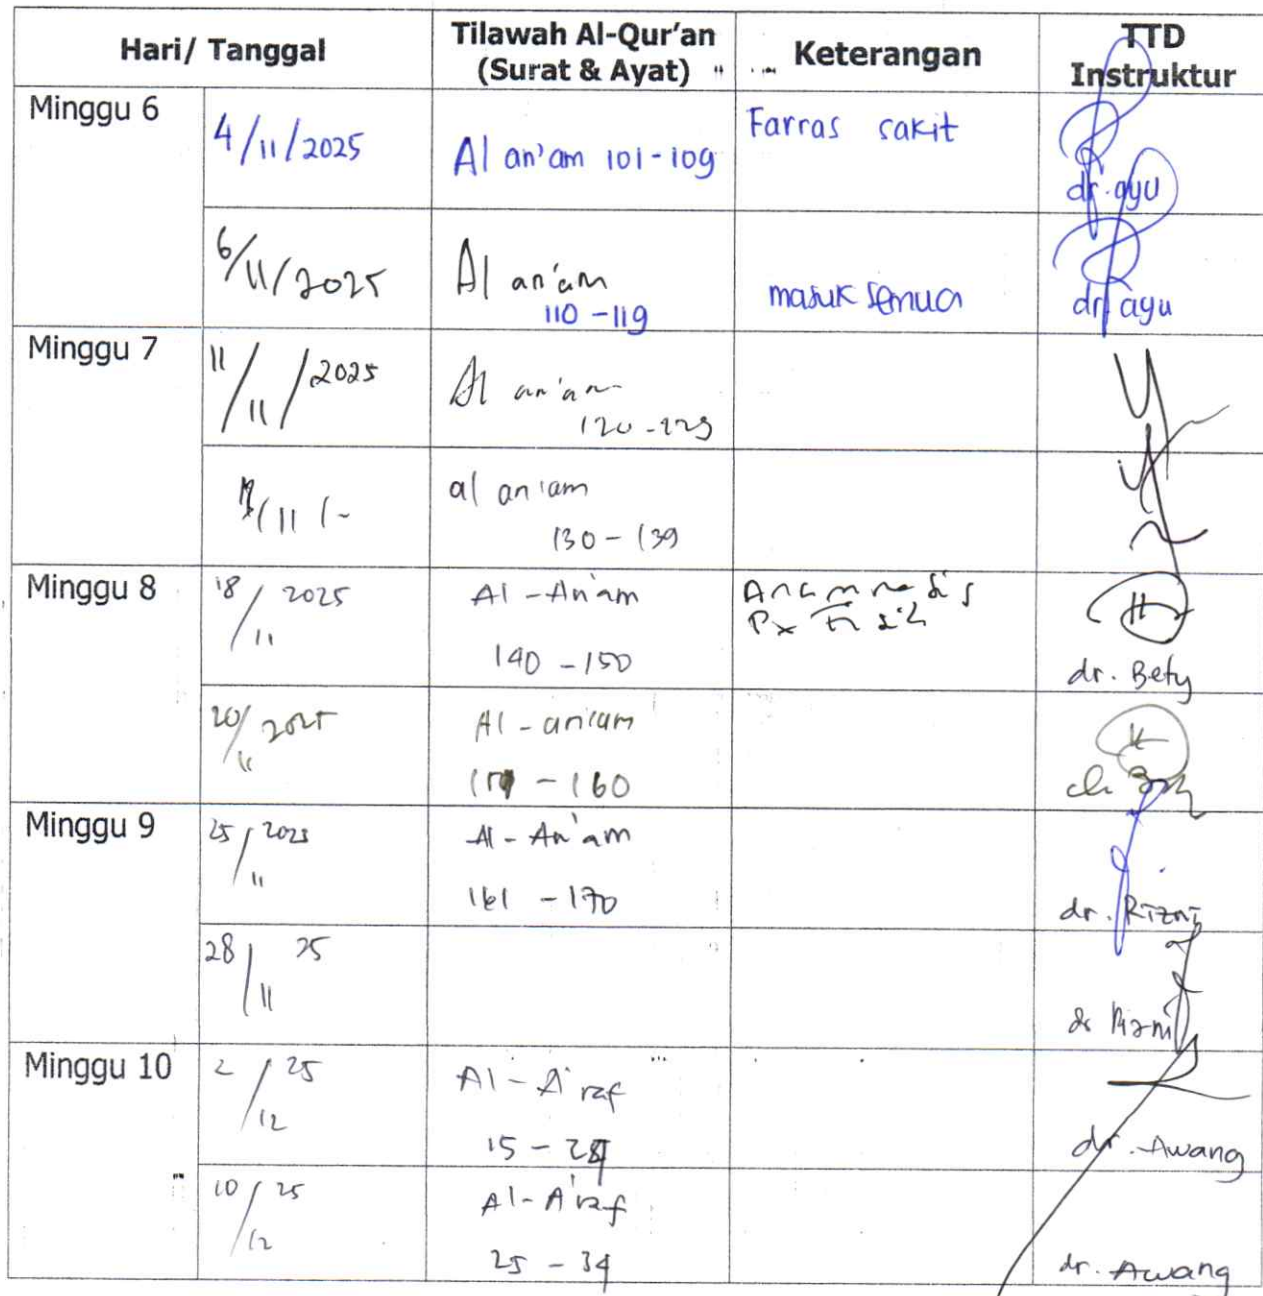 Hari/ Tanggal
Tilawah Al-Qur'an
(Surat & Ayat)
Keterangan
TTD
Instruktur
Minggu 6
4/11/2025
Al an'am 101-109
Farras sakit
dr. ayu
6/11/2025
Al an'am
110-119
masuk semua
dr. ayu
Minggu 7
11/11/2025
Al an'am
120-129
/11/-
al an'am
130-139
Minggu 8
18/11 2025
Al-An'am
140-150
Anamnesis
Px Fisik
dr. Bety
20/11 2025
Al-an'am
-160
Minggu 9
25/11 2025
Al-An'am
161-170
dr. Rizni
28/11 25
dr Rizni
Minggu 10
2/12 25
Al-A'raf
15-24
dr. Awang
10/12 25
Al-A'raf
25-34
dr. Awang